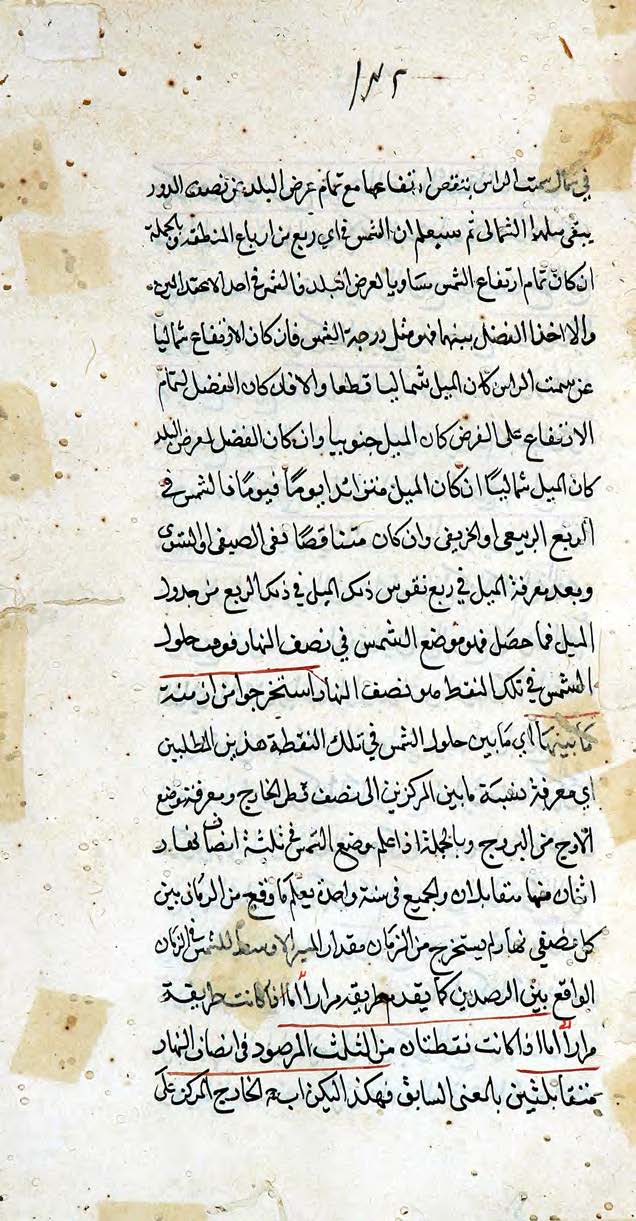 ١٨٢
في شمال سمت الراس ينقص ارتفاعها مع تمام عرض البلد من نصف الدور
يبقى ميلها الشمالى ثم سيعلم ان الشمس فى اي ربع من ارباع المنطقة وبالجملة
ان كان تمام ارتفاع الشمس مساويا لعرض البلد فالشمس في احد الاعتدالين
والا اخذنا الفضل بينهما فهو ميل درجة الشمس فان كان الارتفاع شماليا
عن سمت الراس كان الميل شماليا قطعا والا فان كان الفضل لتمام
الارتفاع على العرض كان الميل جنوبيا وان كان الفضل لعرض البلد
كان الميل شماليا ان كان الميل متزائدا يوماً فيوماً فالشمس في
الربع الربيعى او الخريفى وان كان متناقصا ففى الصيفى او الشتوى
وبعد معرفة الميل في ربع نقوس ذلك الميل في ذلك الربع من جدول
الميل فما حصل فهو موضع الشمس في نصف النهار فوقت حلول
الشمس في تلك النقط هو نصف النهار استخرجوا من ازمنة
ما بينها اي ما بين حلول الشمس في تلك النقطة هذين المطلبين
اي معرفة نسبة ما بين المركزين الى نصف قطر الخارج ومعرفة موضع
الاوج من البروج وبالجملة اذا علم موضع الشمس في ثلثة انصاف نهار
اثنان منها متقابلان والجميع فى سنة واحدة يعلم ما وقع من الزمان بين
كل نصفي نهار ثم يستخرج من الزمان مقدار المسير الاوسط للشمس في الزمان
الواقع بين الرصدين كما يقدم طريقه مراراً اما اذا كانت طريقة
مراراً اما اذا كانت نقطتان من الثلث المرصود فى انصاف النهار
متقابلتين بالمعنى السابق فهكذا ليكن اب ج الخارج المركز على